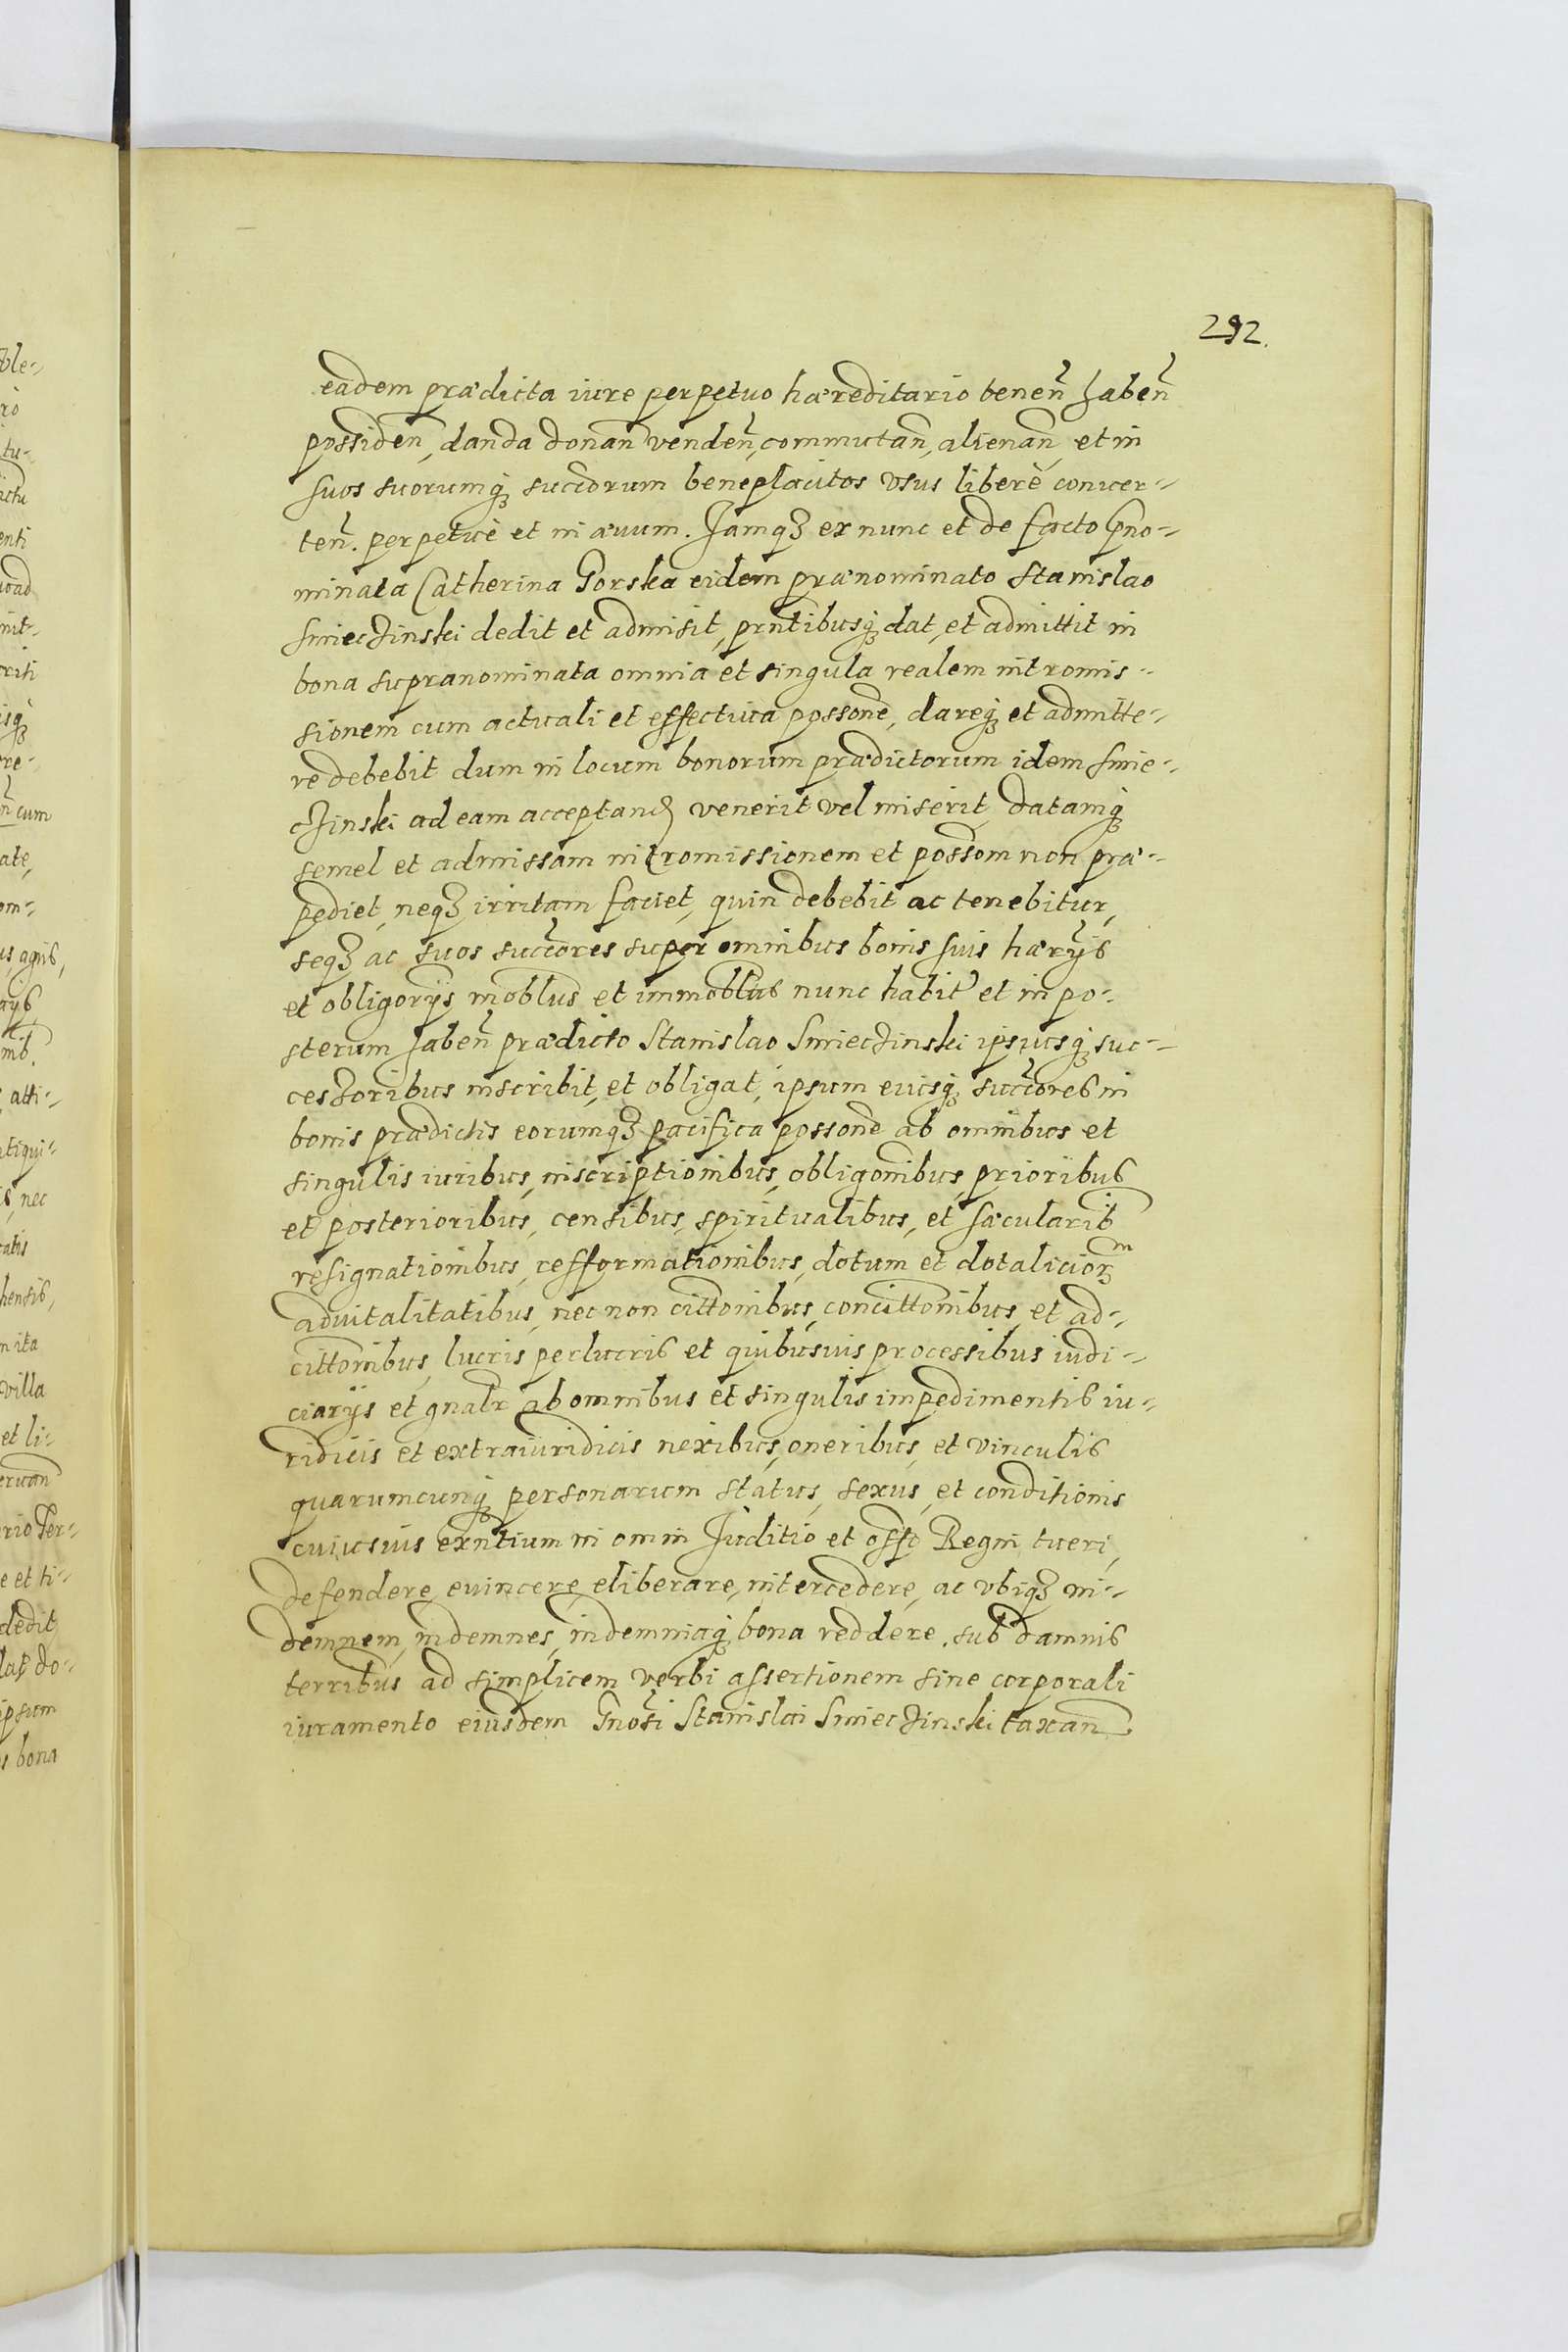 292.
eadem prædicta iure perpetuo hæreditario tenen̄ haben̄
possiden̄, danda donan̄ venden̄, commutan̄, alienan̄, et in
suos suorumq̨ succorum beneplacitos vsus liberè conuer-
ten̄. perpetuè et in æuum. Jamqꝫ ex nunc et de facto p̄no-
minata Catherina Gorska eidem prænominato Stanislao
Smieczinski dedit et admisit, prntibusq̨ dat, et admittit in
bona supranominata omnia et singula realem intromis-
sionem cum actuali et effectiua possone, dareq̨ et admitte-
re debebit dum in locum bonorum prædictorum idem Smie-
czinski ad eam acceptand̨ venerit vel miserit, datamq̨
semel et admissam intromissionem et possom non præ-
pediet, neqꝫ irritam faciet, quin debebit ac tenebitur,
seqꝫ ac suos succores super omnibus bonis suis hæryis
et obligoryis moblus et immoblbus nunc habit' et in po-
sterum haben̄ prædicto Stanislao Smieczinski ipsiusq̨ suc-
cessoribus inscribit, et obligat, ipsum eiusq̨ succores in
bonis prædictis eorumqꝫ pacifica possone ab omnibus et
singulis iuribus, inscriptionibus, obligonibus, prioribus
et posterioribus, censibus, spiritualibus, et sæcularib
resignationibus, refformationibus, dotum et dotaliciorm
aduitalitatibus, nec non cittonibus, concittonibus, et ad-
cittonibus, lucris perlucris et quibusuis processibus iudi-
ciarÿs et gnalr ab omnibus et singulis impedimentis iu-
ridicis et extraiuridicis nexibus, oneribus, et vinculis
quarumcunq̨ personarum status, sexus, et conditionis
cuiusuis exn̄tium in omni Juditio et offo Regni tueri,
defendere, euincere, eliberare, intercedere, ac vbiqꝫ in-
demnem, indemnes, indemniaq̨ bona reddere, sub damnis
terribus ad simplicem verbi assertionem sine corporali
iuramento eiusdem Gnosi Stanislai Smieczinski taxan̄